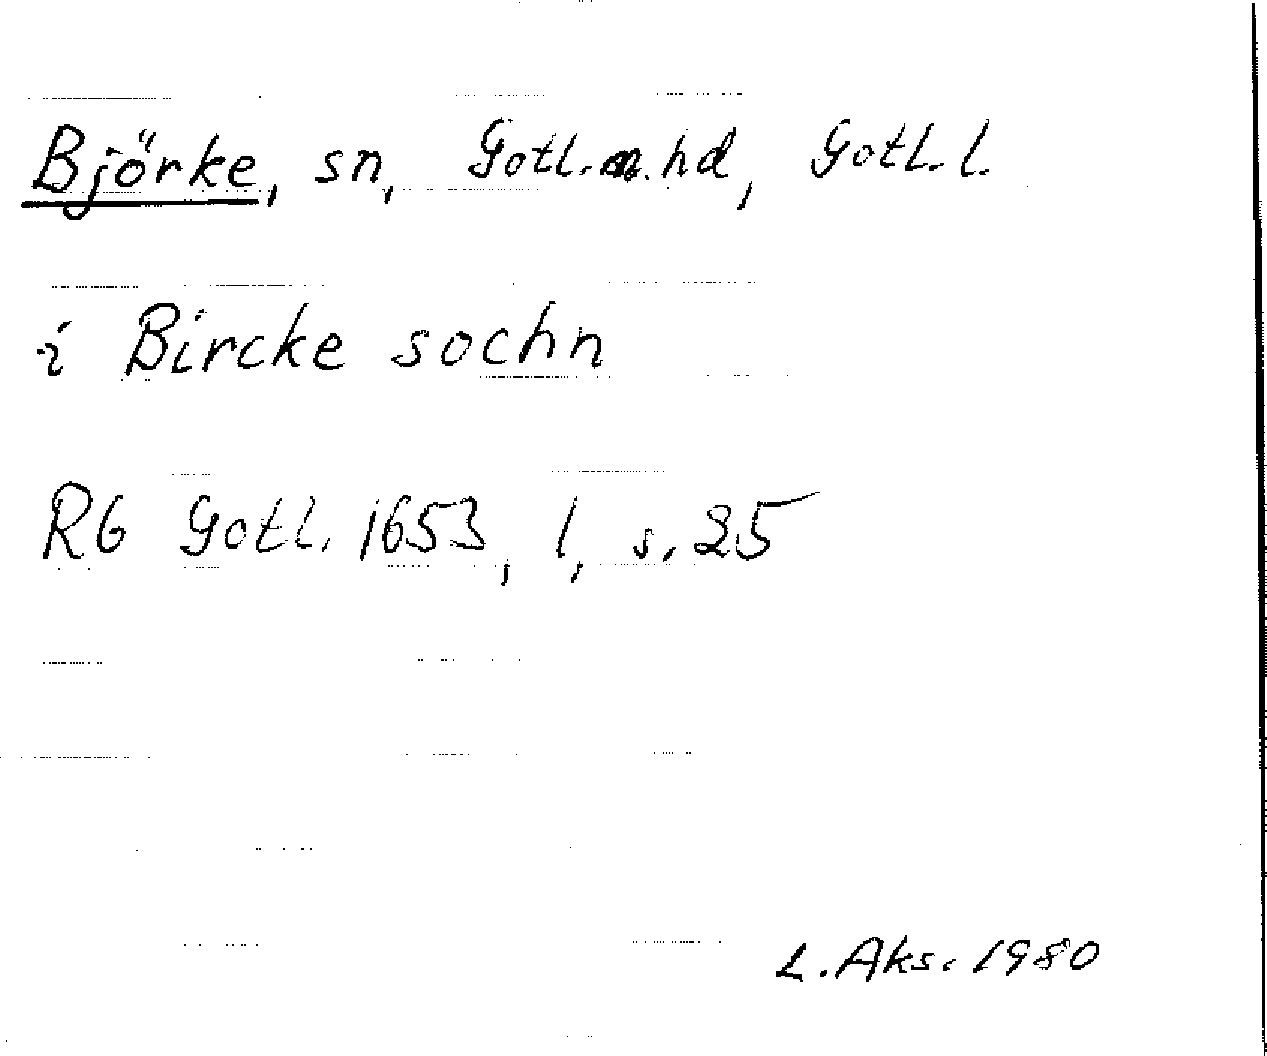 Björke, sn, Gotl. n. hd, Gotl. l.
i Bircke sochn
RG Gotl. 1653, 1, s. 25
L. Aks. 1980